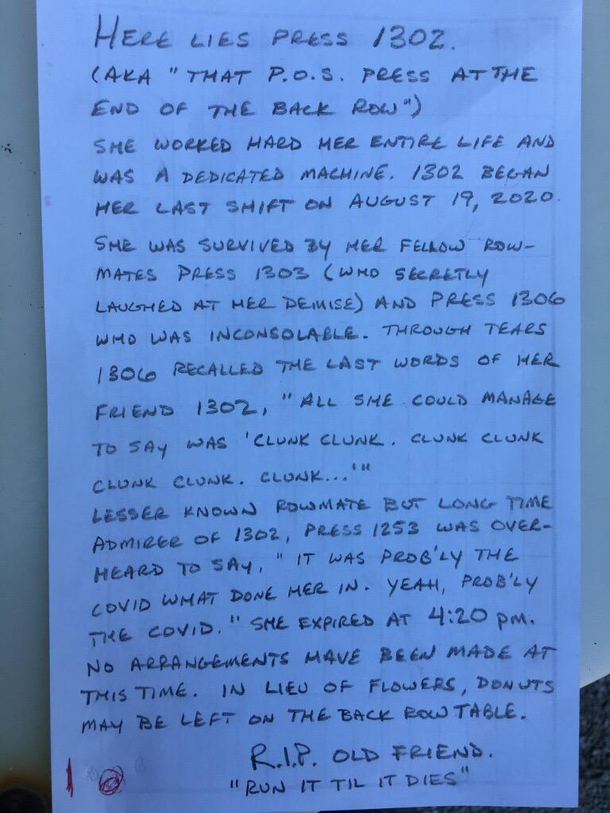 HERE LIES PRESS 1302.
(AKA "THAT P.O.S. PRESS AT THE
END OF THE BACK ROW")
SHE WORKED HARD HER ENTIRE LIFE AND
WAS A DEDICATED MACHINE. 1302 BEGAN
HER LAST SHIFT ON AUGUST 19, 2020.
SHE WAS SURVIVED BY HER FELLOW ROW-
MATES PRESS 1303 (WHO SECRETLY
LAUGHED AT HER DEMISE) AND PRESS 1306
WHO WAS INCONSOLABLE. THROUGH TEARS
1306 RECALLED THE LAST WORDS OF HER
FRIEND 1302, "ALL SHE COULD MANAGE
TO SAY WAS 'CLUNK CLUNK. CLUNK CLUNK
CLUNK CLUNK. CLUNK...'"
LESSER KNOWN ROWMATE BUT LONG TIME
ADMIRER OF 1302, PRESS 1253 WAS OVER-
HEARD TO SAY, "IT WAS PROB'LY THE
COVID WHAT DONE HER IN. YEAH, PROB'LY
THE COVID." SHE EXPIRED AT 4:20 PM.
NO ARRANGEMENTS HAVE BEEN MADE AT
THIS TIME. IN LIEU OF FLOWERS, DONUTS
MAY BE LEFT ON THE BACK ROW TABLE.
R.I.P. OLD FRIEND.
"RUN IT TIL IT DIES"